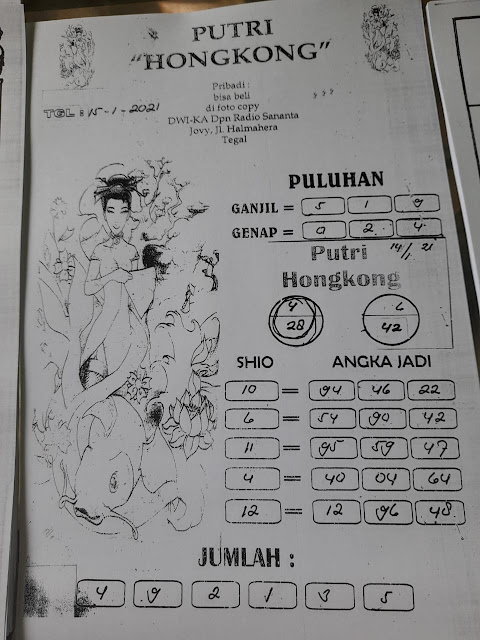 PUTRI
"HONGKONG"
Pribadi :
bisa beli
di foto copy
DWI-KA Dpn Radio Sananta
Jovy, Jl. Halmahera
Tegal
TGL : 15-1-2021
PULUHAN
GANJIL = 5 1 9
GENAP = 0 2 4
Putri 14/1 21
Hongkong
4 6
28 42
SHIO ANGKA JADI
10 = 94 46 22
6 = 54 90 42
11 = 95 59 47
4 = 40 04 64
12 = 12 96 48
JUMLAH :
4 9 2 1 3 5